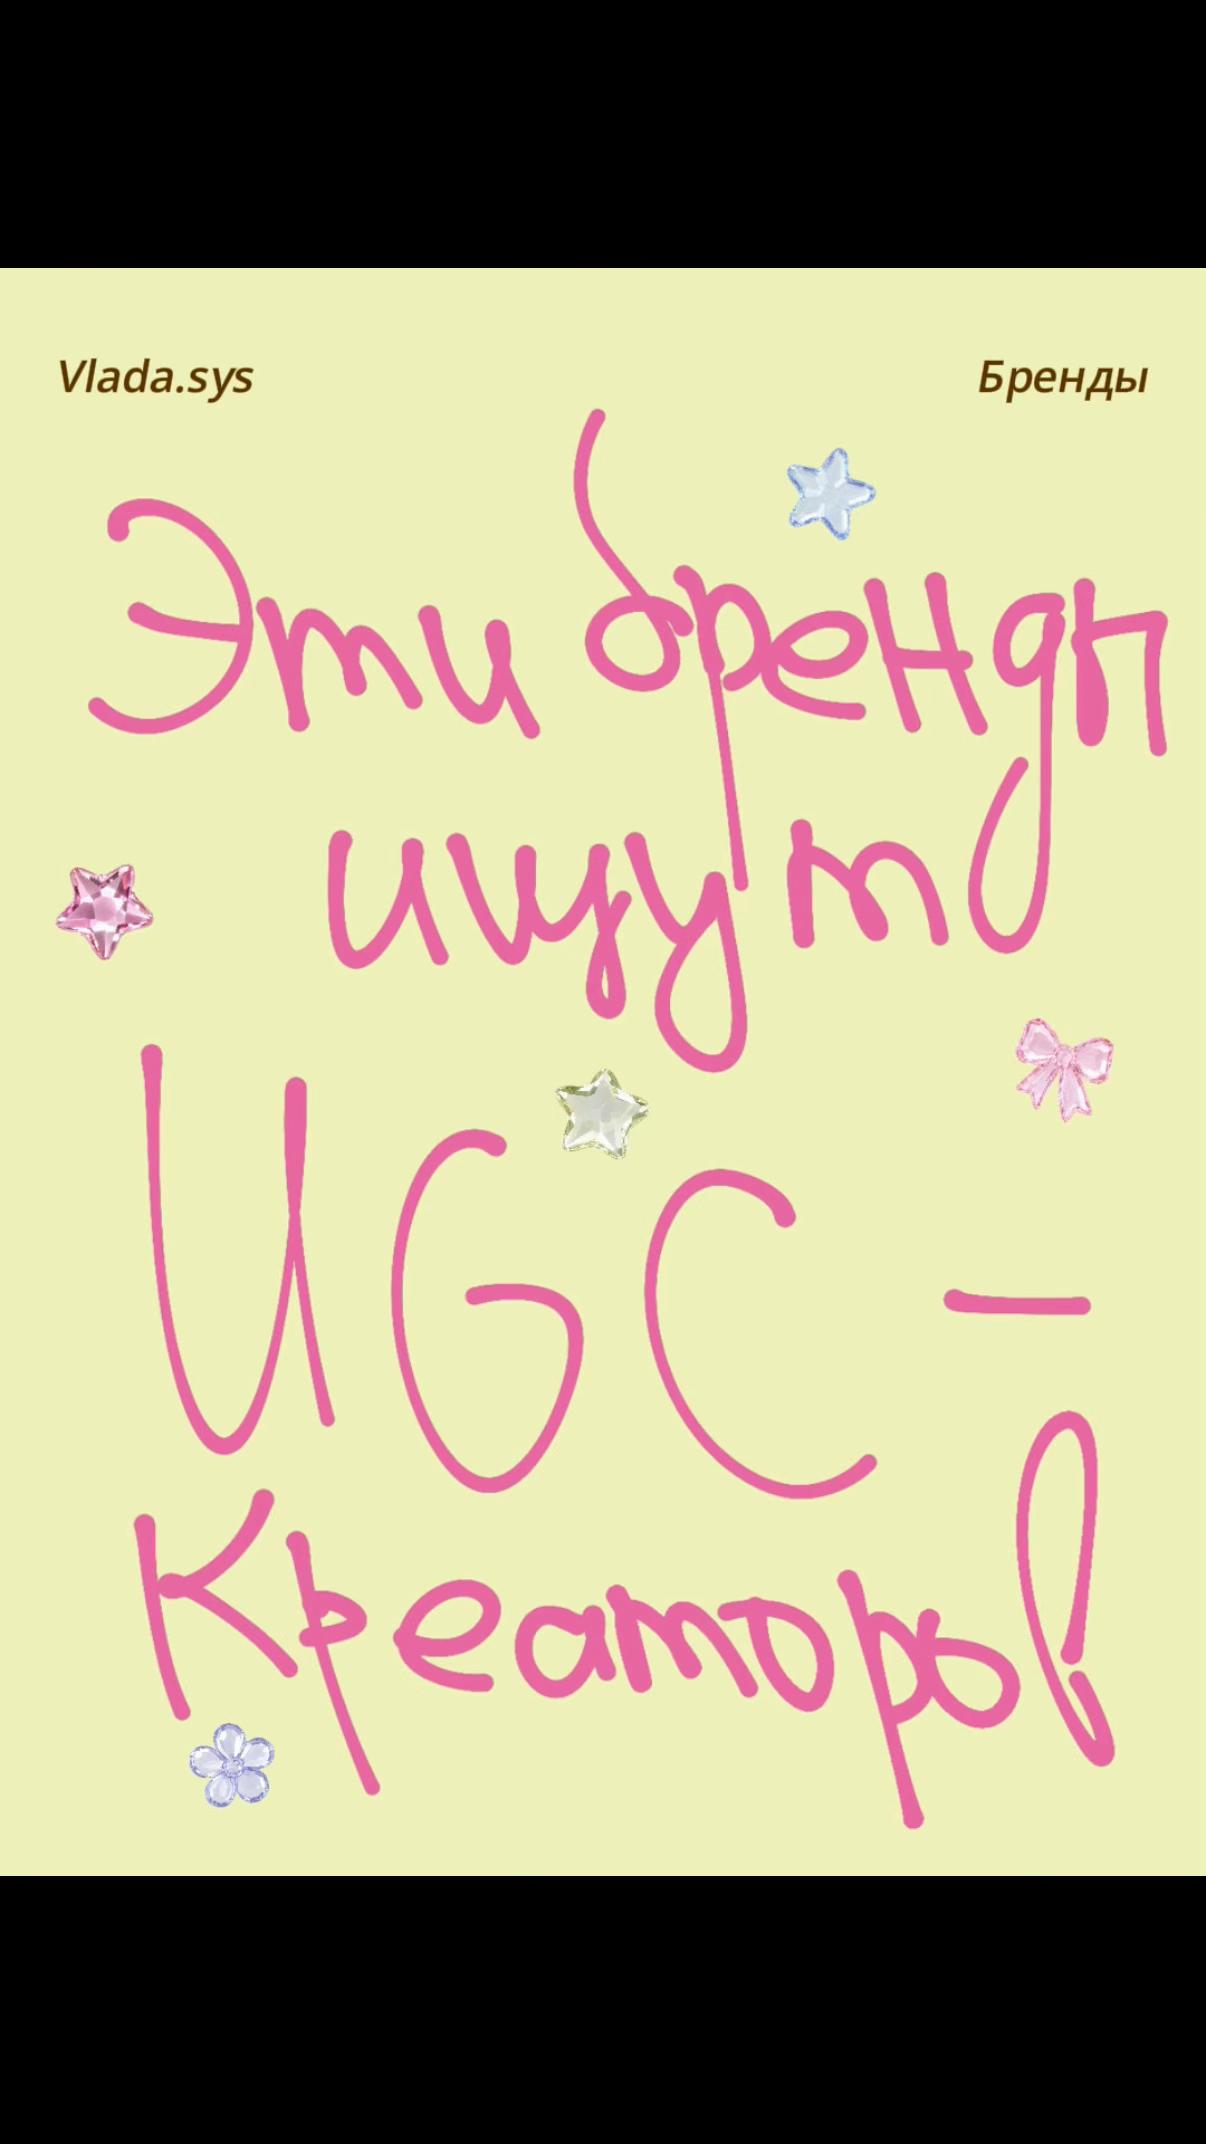 Vlada.sys
Бренды
Эти бренды
ищут
UGC -
Креаторов